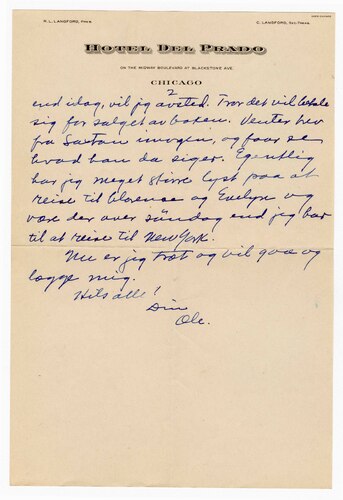 R. L. LANGFORD, PRES.
C. LANGFORD, SEC.-TREAS.
HOTEL DEL PRADO
ON THE MIDWAY BOULEVARD AT BLACKSTONE AVE.
CHICAGO
2
end idag, vil jeg avsted. Tror det vil betale
sig for salget av boken. Venter brev
fra Saxton imorgen, og faar se
hvad han da siger. Egentlig
har jeg meget större lyst paa at
reise til Clarence og Evelyn og
være der over söndag end jeg har
til at reise til New York.
Nu er jeg træt og vil gaa og
lægge mig.
Hils alle!
Din
Ole.